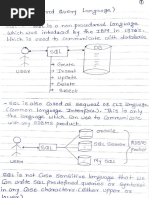 Query Language)
SQL is a non procedural language
which was introduced by the IBM in 1970's.
which is used to communicate with database
SQL
DB
user
→ Create
→ Insert
→ Update
→ Delete
- SQL is also called as sequel or CLI language
(Common Language Interface). This is the
language which can use to communicate
with any RDBMS product.
Oracle
user
SQL
SQL
My SQL
RDBMS
product
- SQL is not Case Sensitive language that we
can write SQL predefined queries or syntaxes
in any case characters (either upper or
lower)